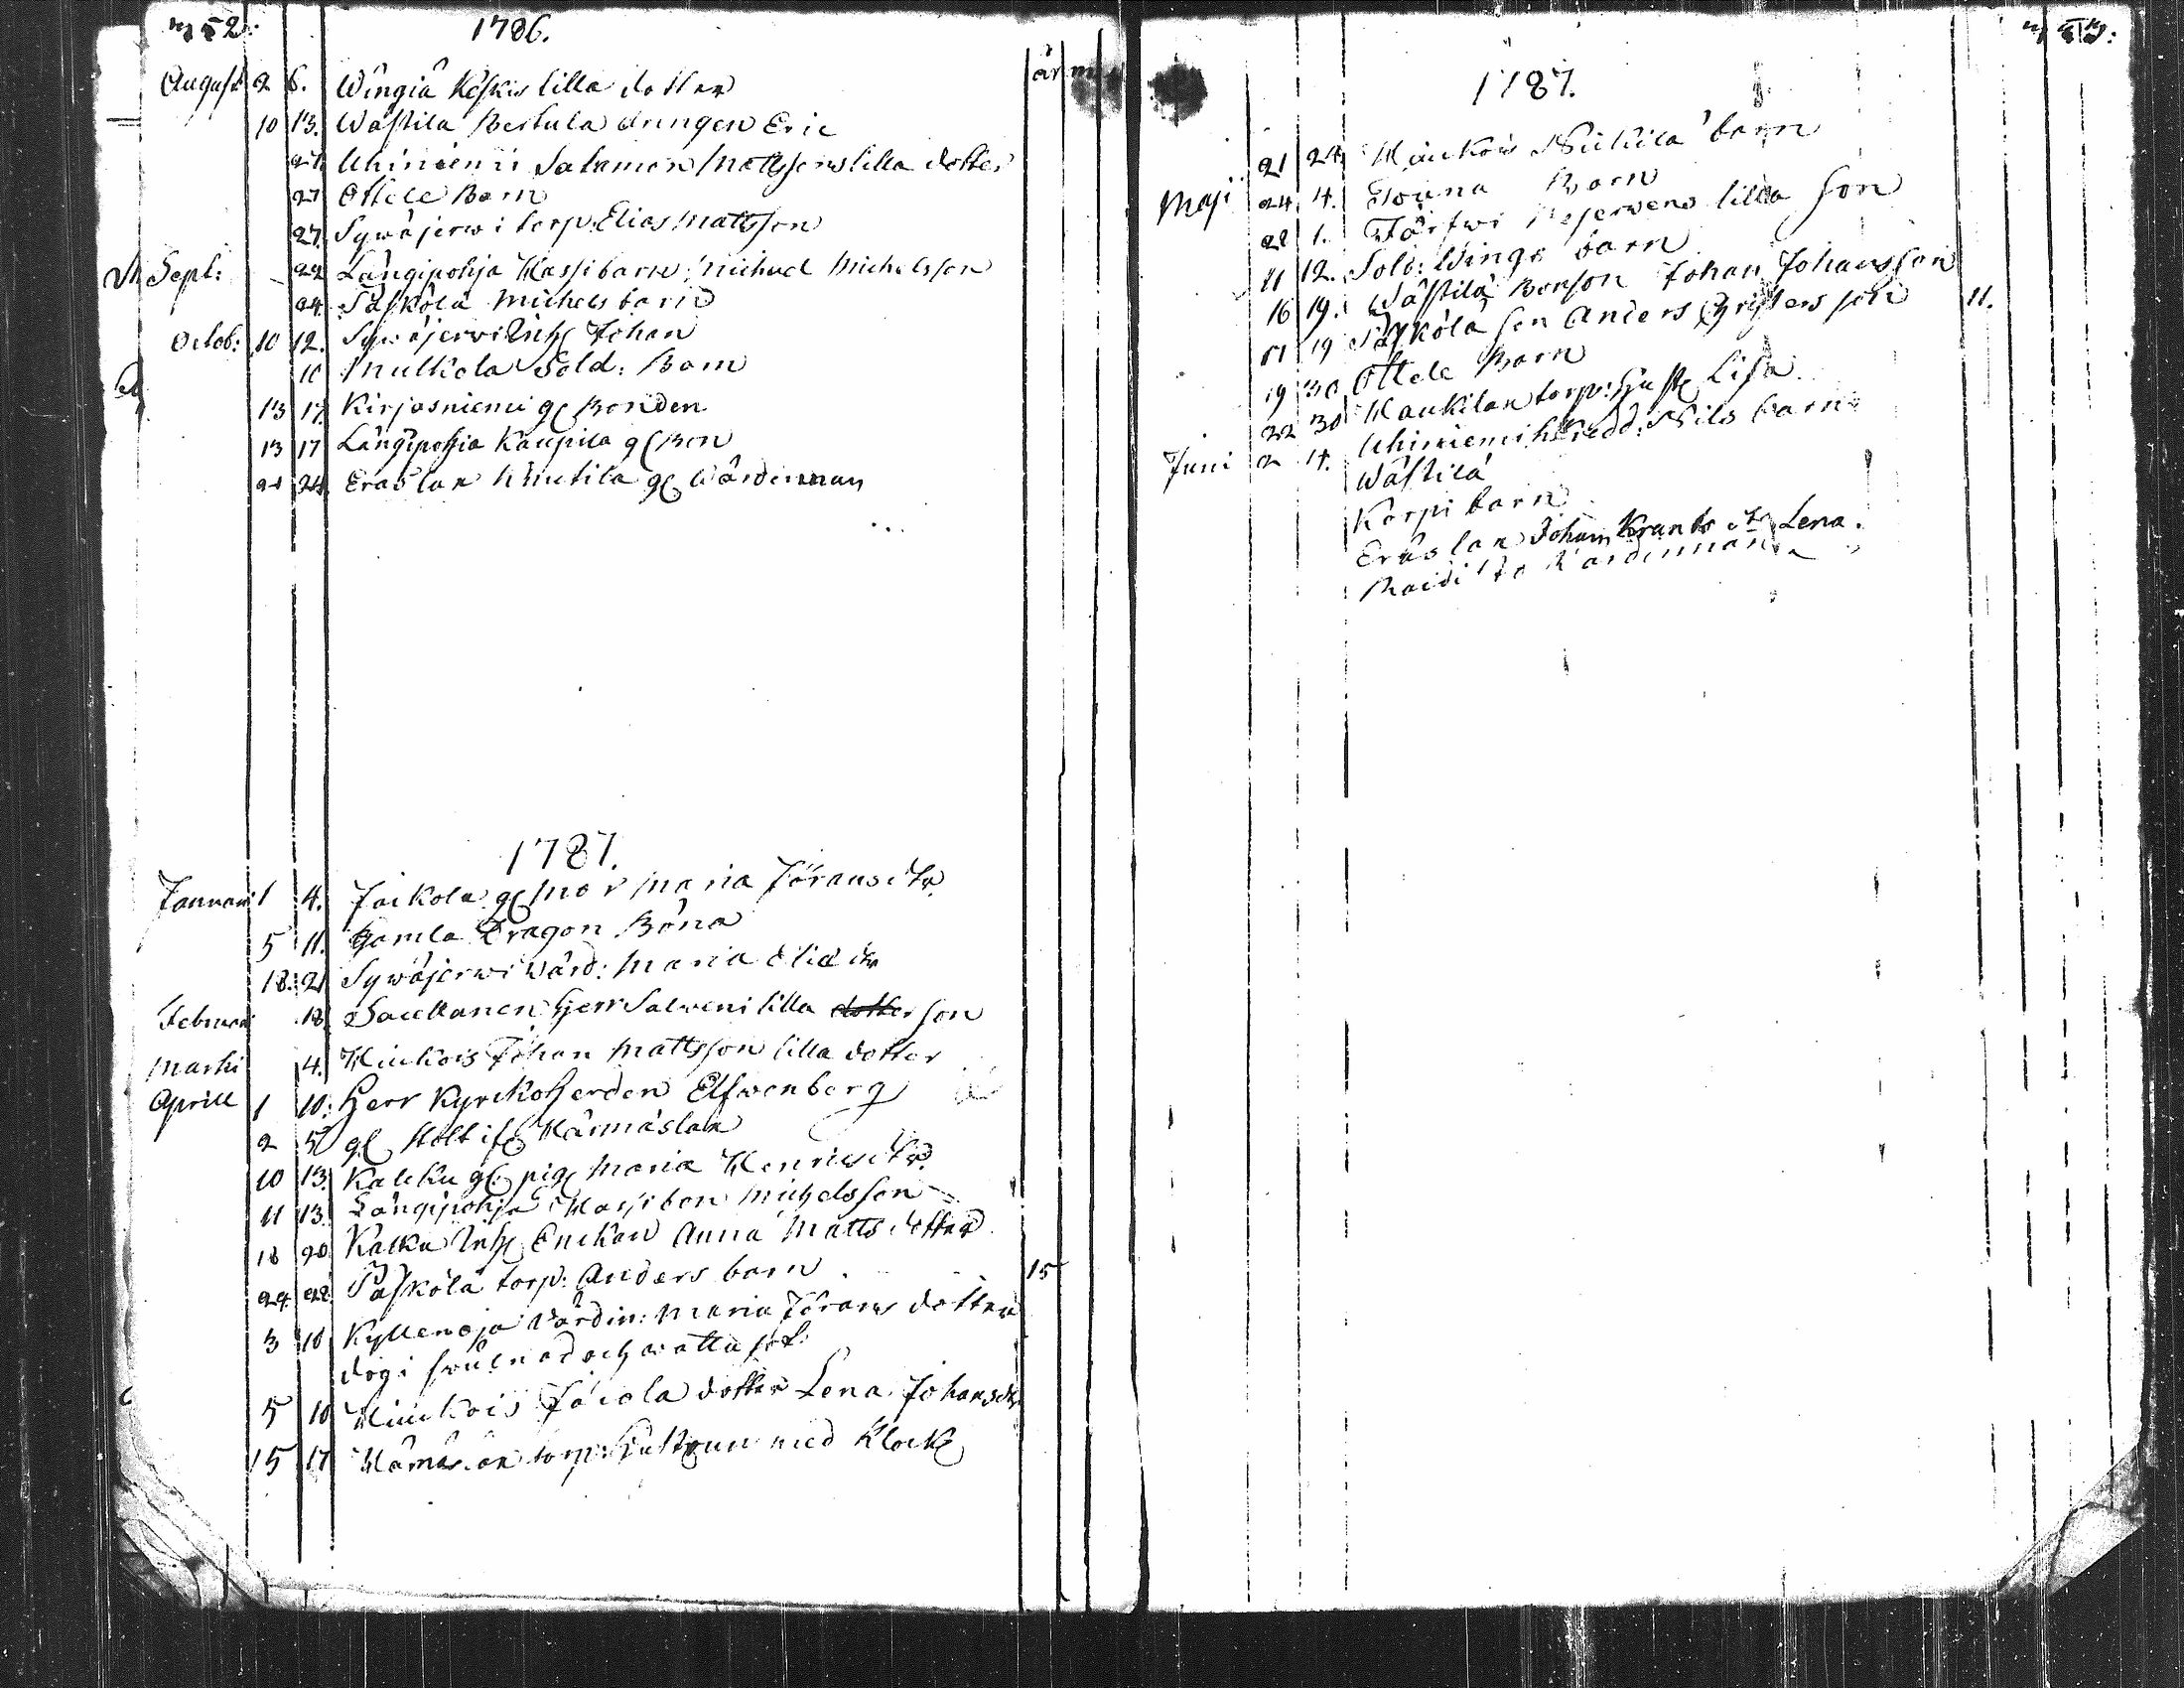 1786.
år
August 2 6. Wingiä Käskis lilla dotter
10 13. Wästila Bertula drengen Eric
27 Uhiniemi Salomon Mattssons lilla dotter
27 Ottele Barn
27. Sywäjerwi torp: Elias Mattsson
Sept: 24 Längipohja Hassi barn: Michael Michelsson
24 Säskölä Michels barn
Octob: 10 12. Sywäjerwi Johan
Mulkola Sold: Barn
13 17. Kirjasniemi gl Bonden
13 17 Längipohja Kaupila gl Bon
21 24 Eräslax Knutila gl Wärdinnan
1787.
Januari 1 4. Jaikola gl mor Maria Jöransdtr
5 11. Gamla Dragon Böna
18. 21 Sywäjerwi Wärd: Maria Elia dtr
Februari 18 Herr Salveni lilla dotter son
Marti 4. Kiukois Johan Mattsson lilla dotter
Aprill 1 10: Herr Kyrckoherden Elfwenberg
2 5 gl Härmäslax
10 13. Kalcku gl: pig Maria Henricsdtr
11 13. Längipohja Hassi bon Michelsson
18 20 Kalku Enckan Anna Matts dotter
24 28 Säskölä torp: Anders barn 15
3 10 Kyllenoja Wärdin: Maria Jörans dotter
dog i swulnad och wattusot:
5 10 Kiukois Jäiola dotter Lena Johansdtr
15 17 torp: Hustrun med Klock
1787.
21 24 Kiukois Nickilä barn
Maji 24 4. Jouna Barn
28 1. Järfwi Reserwens lilla son
11 12. Sold: Wings barn
16 19. Wästilä Bonson Johan Johansson
11 19 Säskölä son Anders Christersson 11.
19 30 Ottele Barn
22 30 Haukilax torp: Hust Lisa
Juni 2 4. Uhiniemi Nils barn
Wästilä
Korpi barn
Eräslax Johan Krants dtr Lena.
Wärdinnan